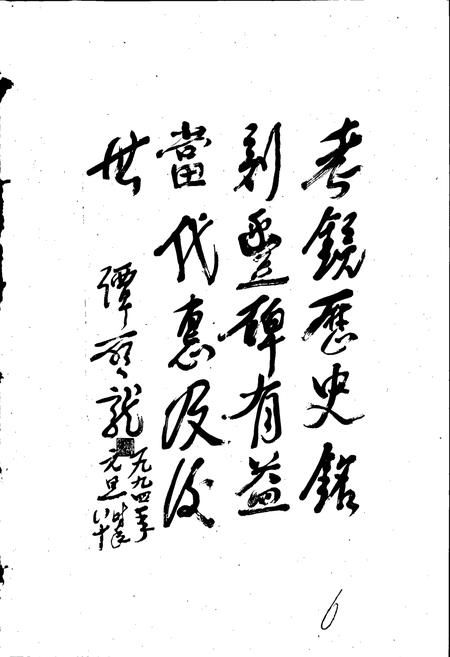 考鏡歷史銘
刻豐碑有益
當代惠及後
世
譚啓龍
一九九四年
元旦時年
八十
6